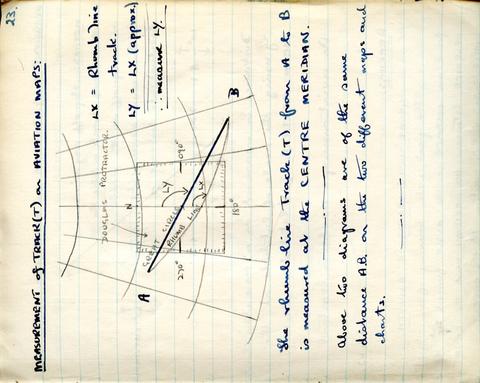 23.
MEASUREMENT of TRACK(T) on AVIATION MAPS:
LX = Rhumb line
track.
LY = LX (approx)
∴ measure LY.
DOUGLAS PROTRACTOR.
N
090°
180°
270°
LY
LX
GREAT CIRCLE
RHUMB LINE
A
B
The rhumb line Track (T) from A to B
is measured at the CENTRE MERIDIAN.
Above two diagrams are of the same
distance AB on the two different maps and
charts.